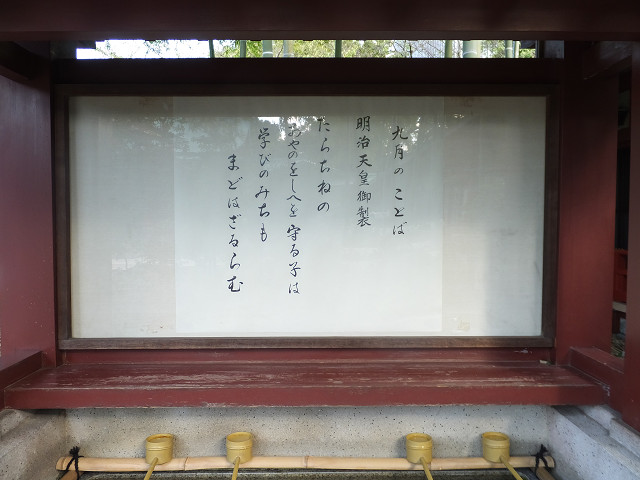 九月のことば
明治天皇御製
たらちねの
おやのをしへを守る子は
学びのみちも
まどはざるらむ